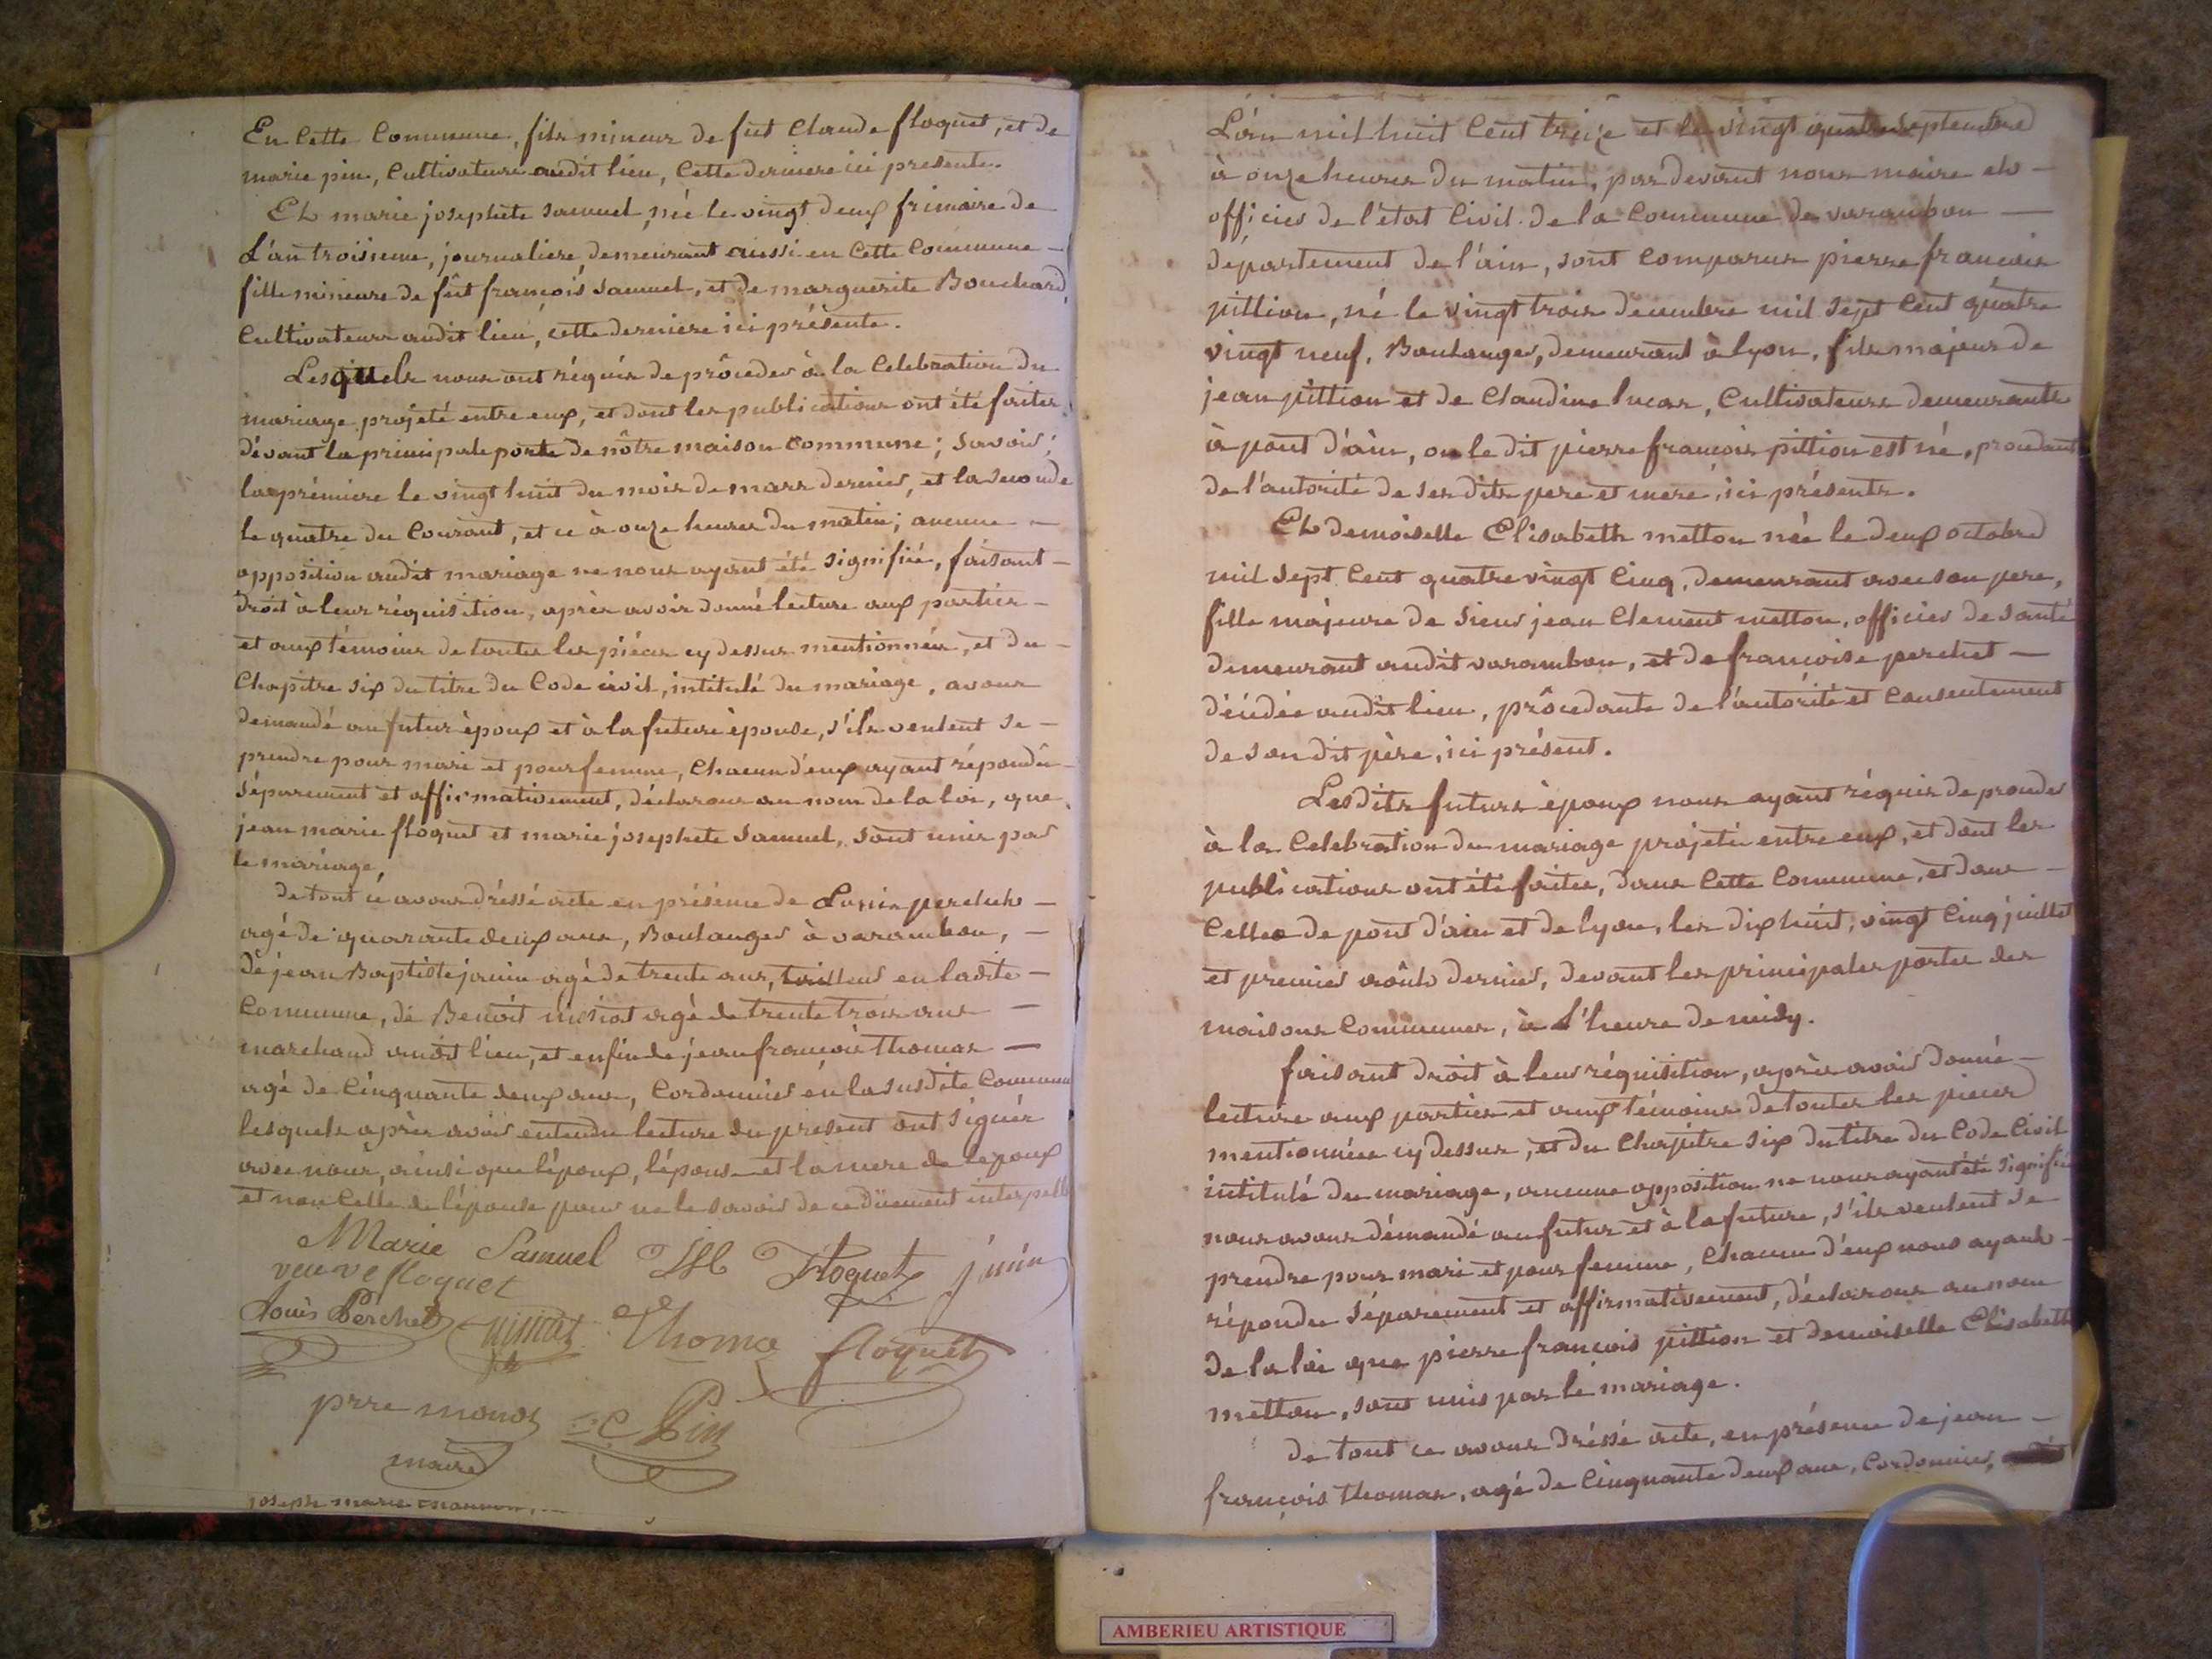 En Cette Commune, fils mineur de fut Claude floquet, et de
marie pin, Cultivateurs audit lieu, Cette derniere ici presente.
Et marie josephete samuel, né le vingt deux frimaire de
L'an troisieme, journaliere, demeurant aussi en Cette Commune —
fille mineure de fût françois samuel, et de marguerite Bouchard,
Cultivateurs audit lieu, cette derniere ici présente.
Lesquels nous ont réquis de prôceder à la Celebration du
mariage projeté entre eux, et dont les publications ont été faites
dévant la principale porte de nôtre maison commune; savoir;
la prémiere le vingt huit du mois de mars dernier, et la seconde
le quatre du Courant, et ce à onze heures du matin; aucune —
opposition audit mariage ne nous ayant été signifiée, faisant —
droit à leur réquisition, après avoir donné lecture aux parties —
et aux témoins de toutes les piéces cy dessus mentionnées, et du —
Chapitre six du titre du Code civil, intitulé du mariage, avons
demandé au futur époux et à la future épouse, s'ils veulent se —
prendre pour mari et pour femme, Chacun d'eux ayant répondû —
séparement et affirmativement, déclarons au nom de la loi, que
jean marie floquet et marie josephete samuel, sont unis par
le mariage,
de tout ce avons dréssé acte en présence de Louis perchet —
agé de quarante deux ans, Boulanger à varambon, —
de jean Baptiste janin agé de trente ans, tailleur en ladite —
Commune, de Benoit miniat agé de trente trois ans —
marchand audit lieu, et enfin de jean françois thomas —
agé de Cinquante deux ans, Cordonnier en la susdite Commune
lesquels après avoir entendu lecture du present ont signés
avec nous, ainsi que l'époux, l'épouse et la mere de l'époux
et non Celle de l'épouse pour ne le savoir de ce düement interpellé
Marie Samuel JM Floquet janin
veuve floquet
Louis Perchet miniat Thoma floquet
prre monot C Pin
maire
joseph marie
L'an mil huit Cent treize et le vingt quatre septembre
à onze heures du matin, par devant nous maire et —
officier de l'état Civil de la Commune de varambon —
département de l'ain, sont Comparus pierre françois
pittion, né le vingt trois decembre mil sept Cent quatre
vingt neuf, Boulanger, demeurant à lyon, fils majeur de
jean pittion et de Claudine lucas, Cultivateurs demeurants
à pont d'ain, ou le dit pierre françois pittion est né, procedant
de l'autorité de ses dits pere et mere, ici présents.
Et demoiselle Elisabeth metton née le deux octobre
mil sept Cent quatre vingt Cinq, demeurant avec son pere,
fille majeure de sieur jean Clement metton, officier de santé
demeurant audit varambon, et de françoise perchet —
décédée audit lieu, prôcedante de l'autorité et Consentement
de son dit père, ici présent.
Lesdits futurs époux nous ayant réquis de proceder
à la Celebration du mariage projeté entre eux, et dont les
publications ont été faites, dans Cette Commune, et dans —
Celles de pont d'ain et de lyon, les dix huit, vingt Cinq juillet
et premier août dernier, devant les principales portes des
maisons Communes, à l'heure de midy.
faisant droit à leur réquisition, après avoir donné —
lecture aux parties et aux témoins de toutes les pieces
mentionnées cy dessus, et du Chapitre six du titre du Code Civil
intitulé du mariage, aucune opposition ne nous ayant été signifiée
nous avons démandé au futur et à la future, s'ils veulent se
prendre pour mari et pour femme, Chacun d'eux nous ayant —
répondu séparement et affirmativement, déclarons au nom
de la loi que pierre françois pittion et demoiselle Elisabeth
metton, sont unis par le mariage.
de tout ce avons dréssé acte, en présence de jean —
françois thomas, agé de Cinquante deux ans, Cordonnier,
AMBERIEU ARTISTIQUE